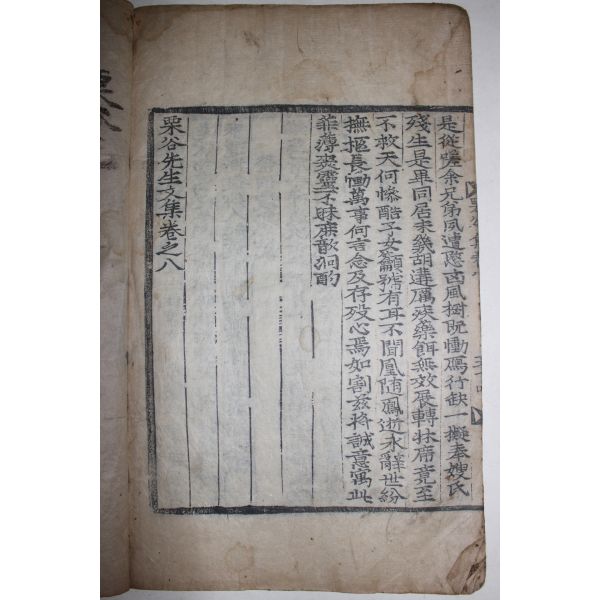 是從嗟余兄弟夙遭愍凶風樹旣慟鴈行缺一擬奉嫂氏
殘生是畢同居未幾胡遘厲疾藥餌無效展轉牀席竟至
不救天何慘酷子女顚號有耳不聞凰隨鳳逝永辭世紛
撫柩長慟萬事何言念及存歿心焉如割玆將誠意寓此
菲薄爽靈不昧庶歆泂酌
栗谷先生文集卷之八